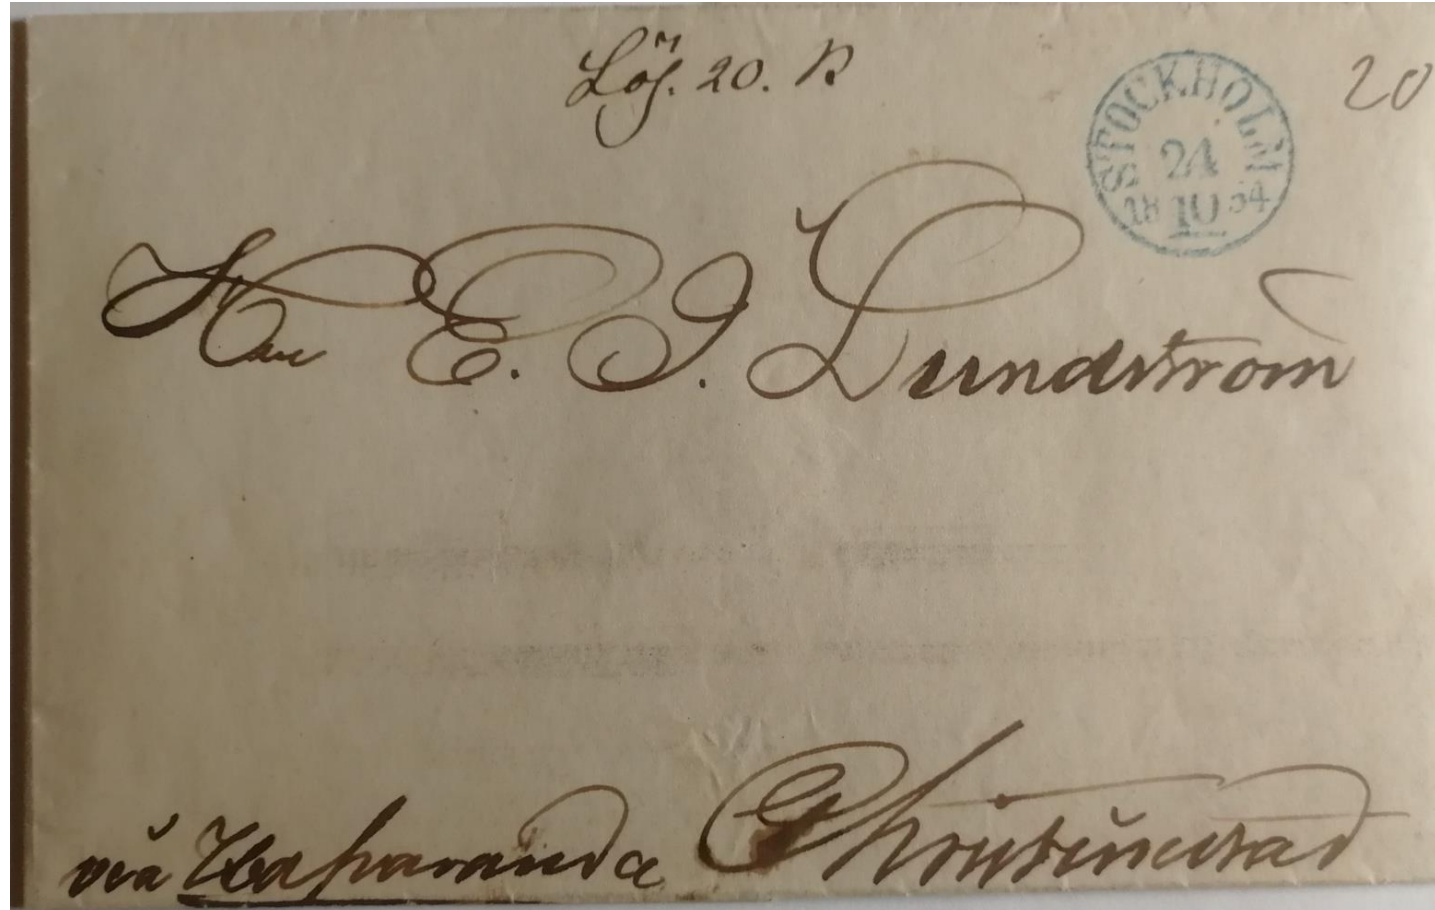 Löf. 20. B
20
STOCKHOLM
24
18 10 54
Herr E. J. Lundström
via Haparanda Christinestad